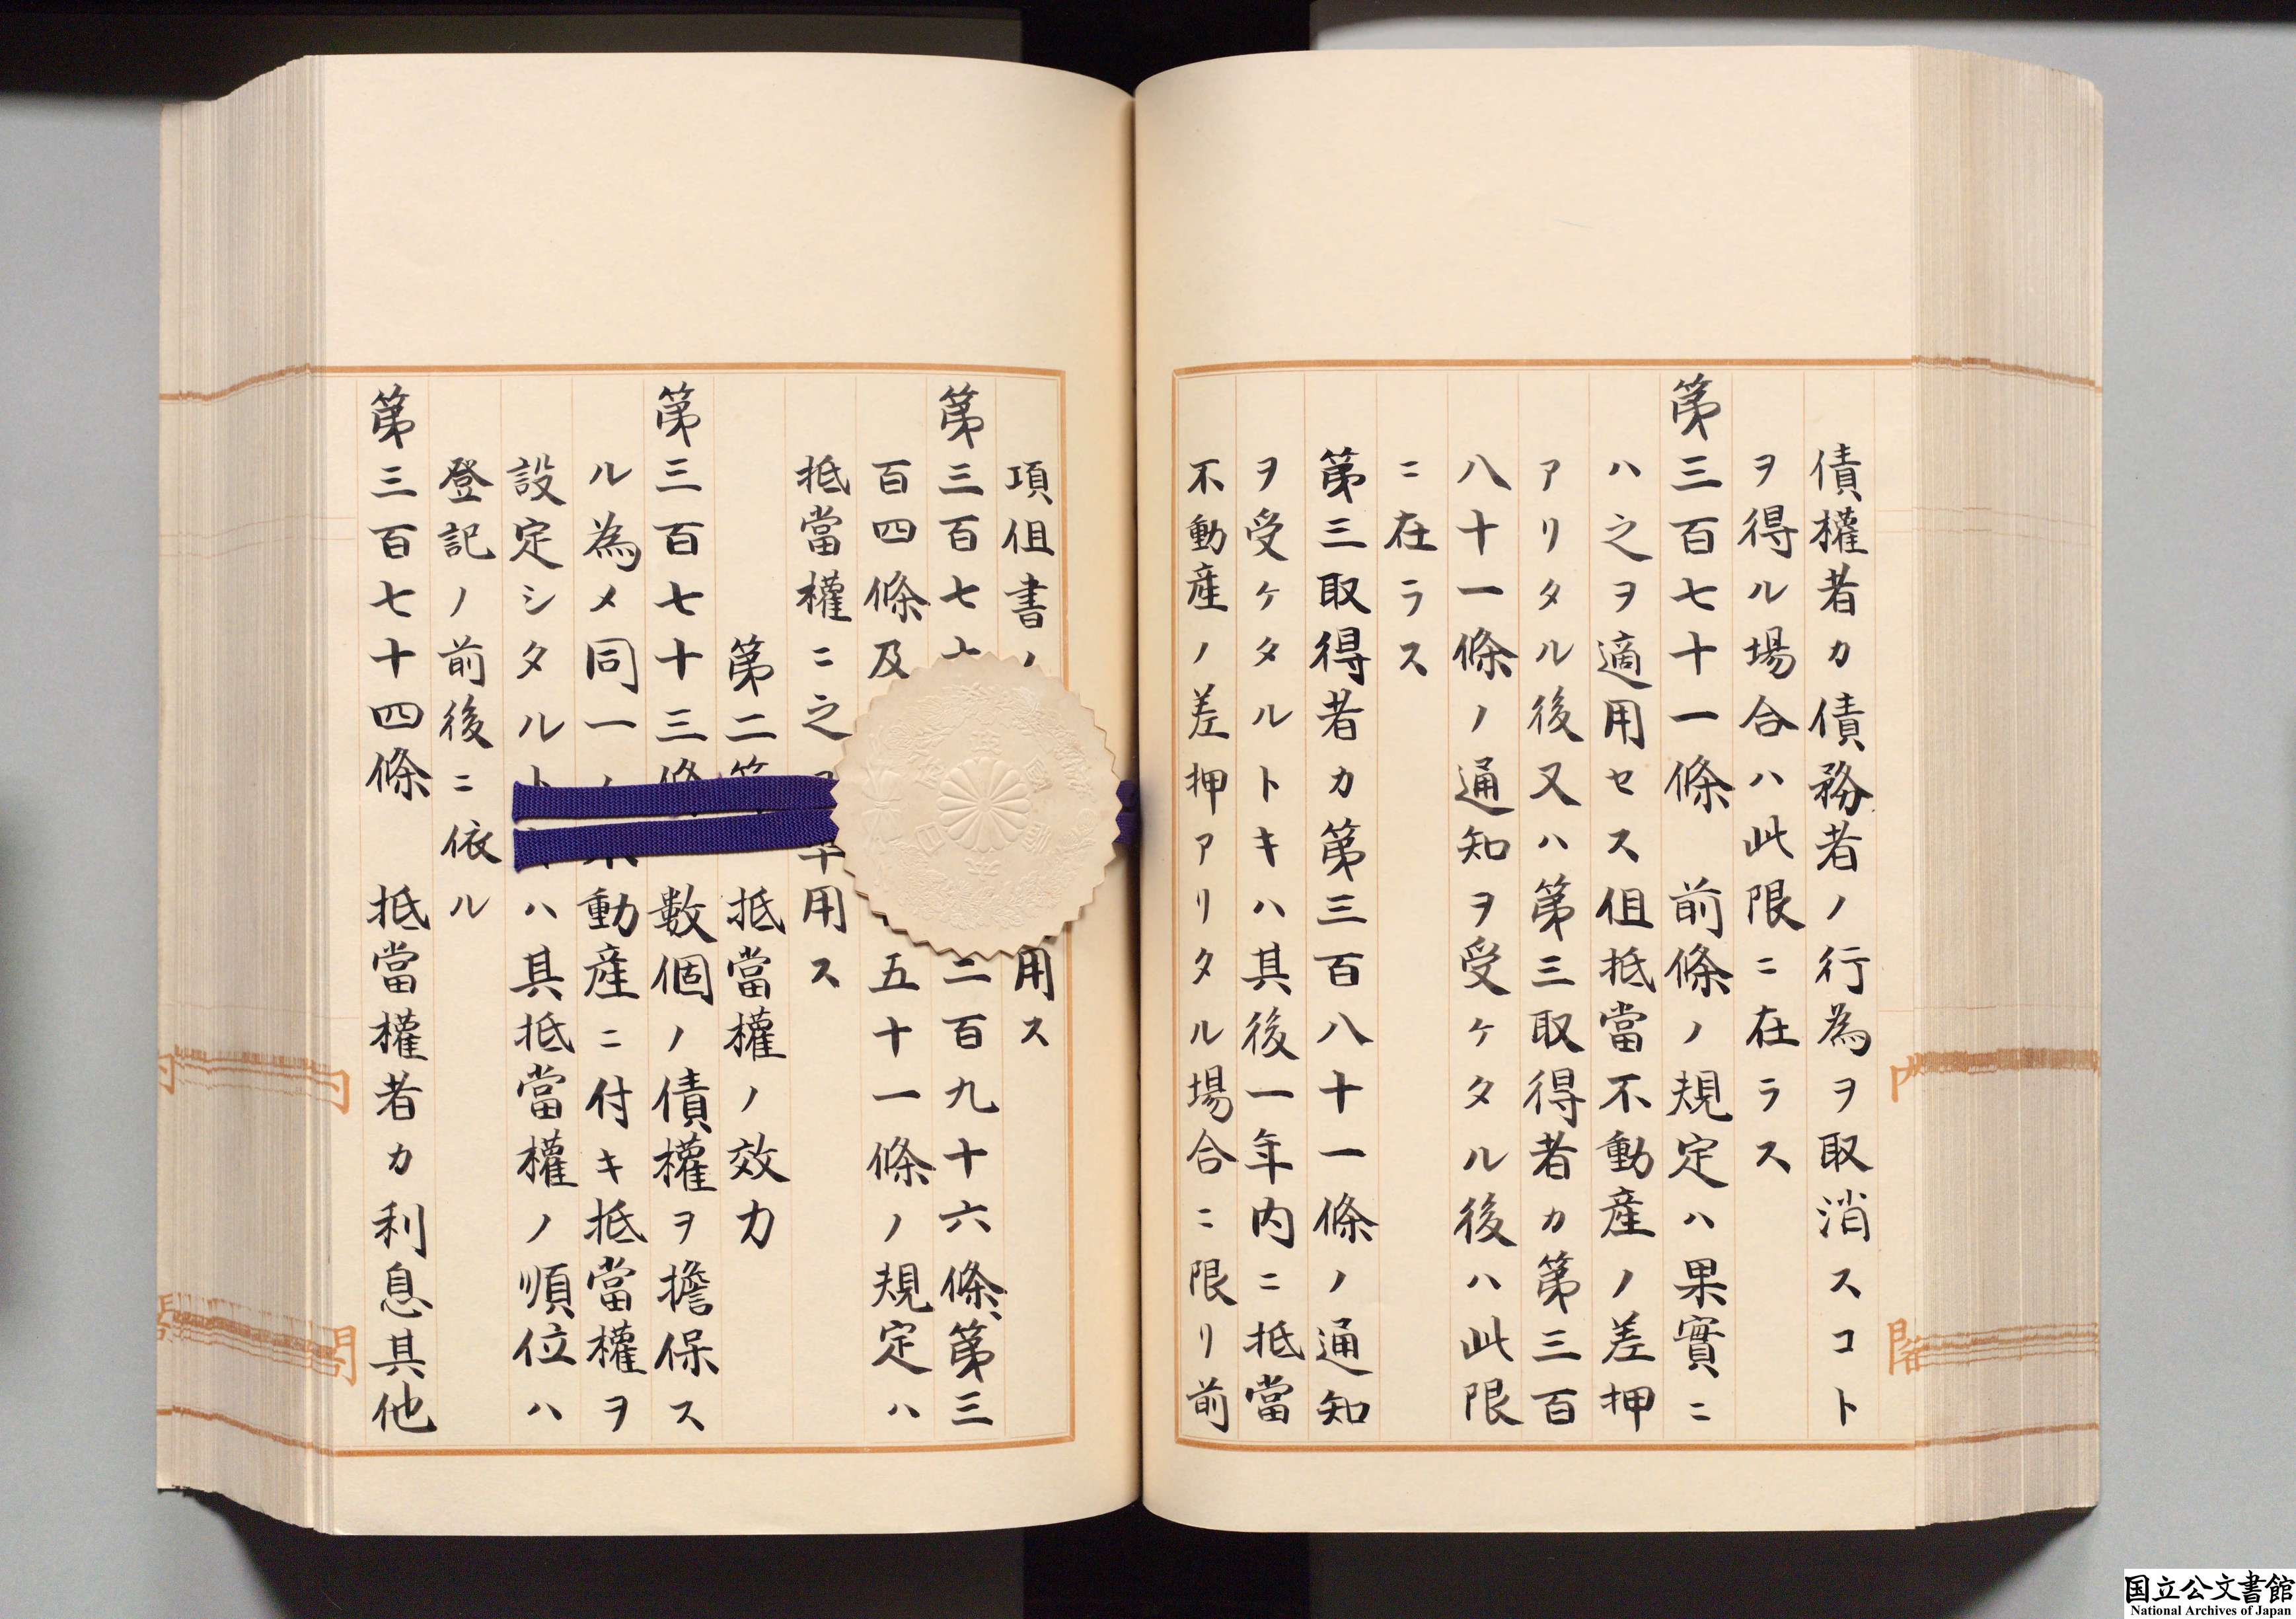 債權者カ債務者ノ行為ヲ取消スコト
ヲ得ル場合ハ此限ニ在ラス
第三百七十一條　前條ノ規定ハ果實ニ
ハ之ヲ適用セス但抵當不動産ノ差押
アリタル後又ハ第三取得者カ第三百
八十一條ノ通知ヲ受ケタル後ハ此限
ニ在ラス
第三取得者カ第三百八十一條ノ通知
ヲ受ケタルトキハ其後一年内ニ抵當
不動産ノ差押アリタル場合ニ限リ前
項但書ノ用ス
第三百七十二百九十六條、第三
百四條及五十一條ノ規定ハ
抵當權ニ之ヲ準用ス
第二節　抵當權ノ效力
第三百七十三條　數個ノ債權ヲ擔保ス
ル為メ同一ノ不動産ニ付キ抵當權ヲ
設定シタルトキハ其抵當權ノ順位ハ
登記ノ前後ニ依ル
第三百七十四條　抵當權者カ利息其他
内閣
国立公文書館
National Archives of Japan